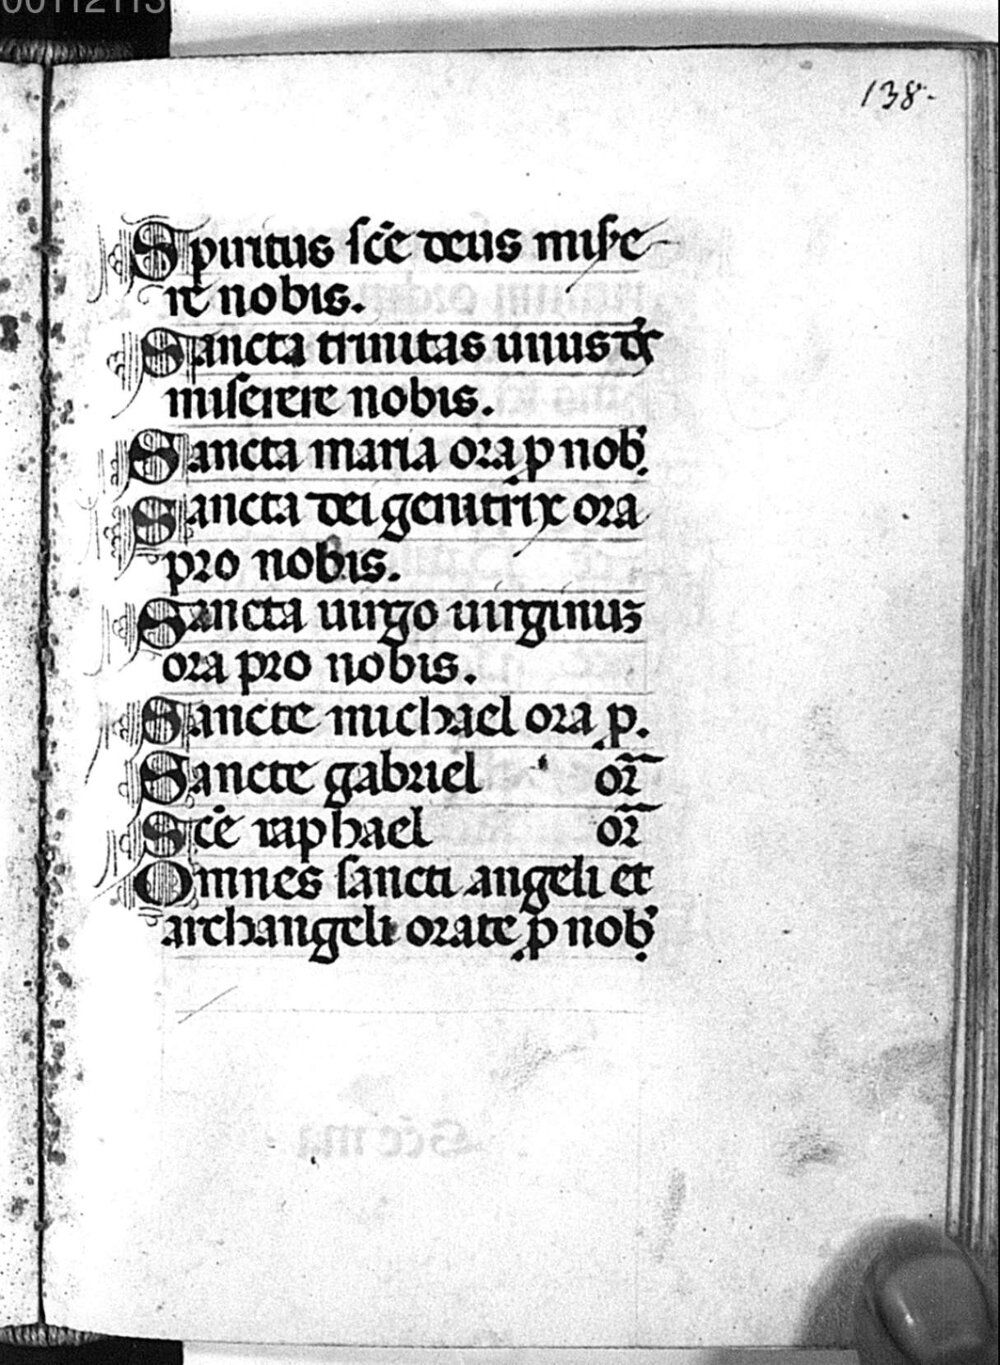 138.
Spiritus sc̄e deus mise
re nobis.
Sancta trinitas unus ds̄
miserere nobis.
Sancta maria ora p nob.
Sancta dei genitrix ora
pro nobis.
Sancta uirgo uirginuꝫ
ora pro nobis.
Sancte michael ora p.
Sancte gabriel or̄
Sc̄e raphael or̄
Omnes sancti angeli et
archangeli orate p nob.